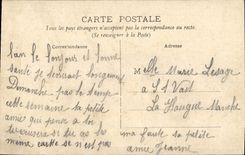 CARTE POSTALE
Tous les pays étrangers n'acceptent pas la correspondance au recto.
(Se renseigner à la Poste)
Correspondance
Adresse
Bonjour et bonne
santé je
Dimanche pas le temps
cette semaine ta petite
amie qui pense à toi
si tu as les
même carte se n'est pas
Mlle Marie Lesage
à St Vaast
La Hougue Manche
ma faute ta petite
amie Jeanne